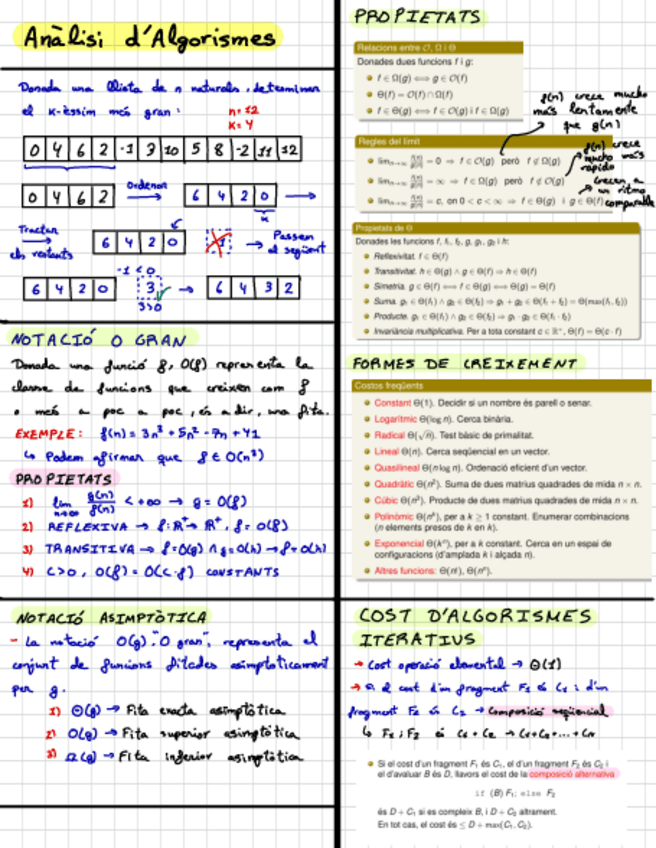 Anàlisi d'Algorismes
Donada una llista de n naturals, determinar
el k-èssim més gran: n=12
k=4
0 4 6 2 -1 3 10 5 8 -2 11 12
0 4 6 2 Ordenem 6 4 2 0
k
Tractar
els restants
6 4 2 0 -1 Passem
al següent
-1 < 0
6 4 2 0 3 → 6 4 3 2
3>0
NOTACIÓ O GRAN
Donada una funció f, O(f) representa la
classe de funcions que creixen com f
o més a poc a poc, és a dir, una fita.
EXEMPLE: f(n) = 3n³ + 5n² - 7n + 41
↳ Podem afirmar que f ∈ O(n³)
PROPIETATS
1) lim n→∞ g(n)/f(n) < +∞ → g = O(f)
2) REFLEXIVA → f: R⁺→ R⁺, f = O(f)
3) TRANSITIVA → f=O(g) ∧ g=O(h) → f=O(h)
4) C>0, O(f) = O(c·f) CONSTANTS
NOTACIÓ ASIMPTÒTICA
- La notació O(g) "O gran", representa el
conjunt de funcions fitades asimptoticament
per g.
1) Θ(g) → Fita exacta asimptòtica
2) O(g) → Fita superior asimptòtica
3) Ω(g) → Fita inferior asimptòtica
PROPIETATS
Relacions entre O, Ω i Θ
Donades dues funcions f i g:
f ∈ Ω(g) ⟺ g ∈ O(f)
Θ(f) = O(f) ∩ Ω(f)
f ∈ Θ(g) ⟺ f ∈ O(g) i f ∈ Ω(g)
f(n) crece mucho
más lentamente
que g(n)
Regles del límit
lim n→∞ f(n)/g(n) = 0 ⇒ f ∈ O(g) però f ∉ Ω(g)
lim n→∞ f(n)/g(n) = ∞ ⇒ f ∈ Ω(g) però f ∉ O(g)
lim n→∞ f(n)/g(n) = c, on 0 < c < ∞ ⇒ f ∈ Θ(g) i g ∈ Θ(f)
f(n) crece
mucho más
rápido
Crecen a
un ritmo
comparable
Propietats de Θ
Donades les funcions f, f₁, f₂, g, g₁, g₂ i h:
Reflexivitat. f ∈ Θ(f)
Transitivitat. h ∈ Θ(g) ∧ g ∈ Θ(f) ⇒ h ∈ Θ(f)
Simetria. g ∈ Θ(f) ⟺ f ∈ Θ(g) ⟺ Θ(g) = Θ(f)
Suma. g₁ ∈ Θ(f₁) ∧ g₂ ∈ Θ(f₂) ⇒ g₁ + g₂ ∈ Θ(f₁ + f₂) = Θ(max(f₁, f₂))
Producte. g₁ ∈ Θ(f₁) ∧ g₂ ∈ Θ(f₂) ⇒ g₁ · g₂ ∈ Θ(f₁ · f₂)
Invariància multiplicativa. Per a tota constant c ∈ R⁺, Θ(f) = Θ(c · f)
FORMES DE CREIXEMENT
Costos freqüents
Constant Θ(1). Decidir si un nombre és parell o senar.
Logarítmic Θ(log n). Cerca binària.
Radical Θ(√n). Test bàsic de primalitat.
Lineal Θ(n). Cerca seqüencial en un vector.
Quasilineal Θ(n log n). Ordenació eficient d'un vector.
Quadràtic Θ(n²). Suma de dues matrius quadrades de mida n × n.
Cúbic Θ(n³). Producte de dues matrius quadrades de mida n × n.
Polinòmic Θ(nᵏ), per a k ≥ 1 constant. Enumerar combinacions
(n elements presos de k en k).
Exponencial Θ(kⁿ), per a k constant. Cerca en un espai de
configuracions (d'amplada k i alçada n).
Altres funcions: Θ(n!), Θ(nⁿ).
COST D'ALGORISMES
ITERATIUS
→ Cost operació elemental → Θ(1)
→ Si el cost d'un fragment F₁ és C₁ i d'un
fragment F₂ és C₂ → Composició seqüencial
↳ F₁ ; F₂ és C₁ + C₂ → C₁+C₂+...+Cₙ
Si el cost d'un fragment F₁ és C₁, el d'un fragment F₂ és C₂ i
el d'avaluar B és D, llavors el cost de la composició alternativa
if (B) F₁; else F₂
és D + C₁ si es compleix B, i D + C₂ altrament.
En tot cas, el cost és ≤ D + max(C₁, C₂).